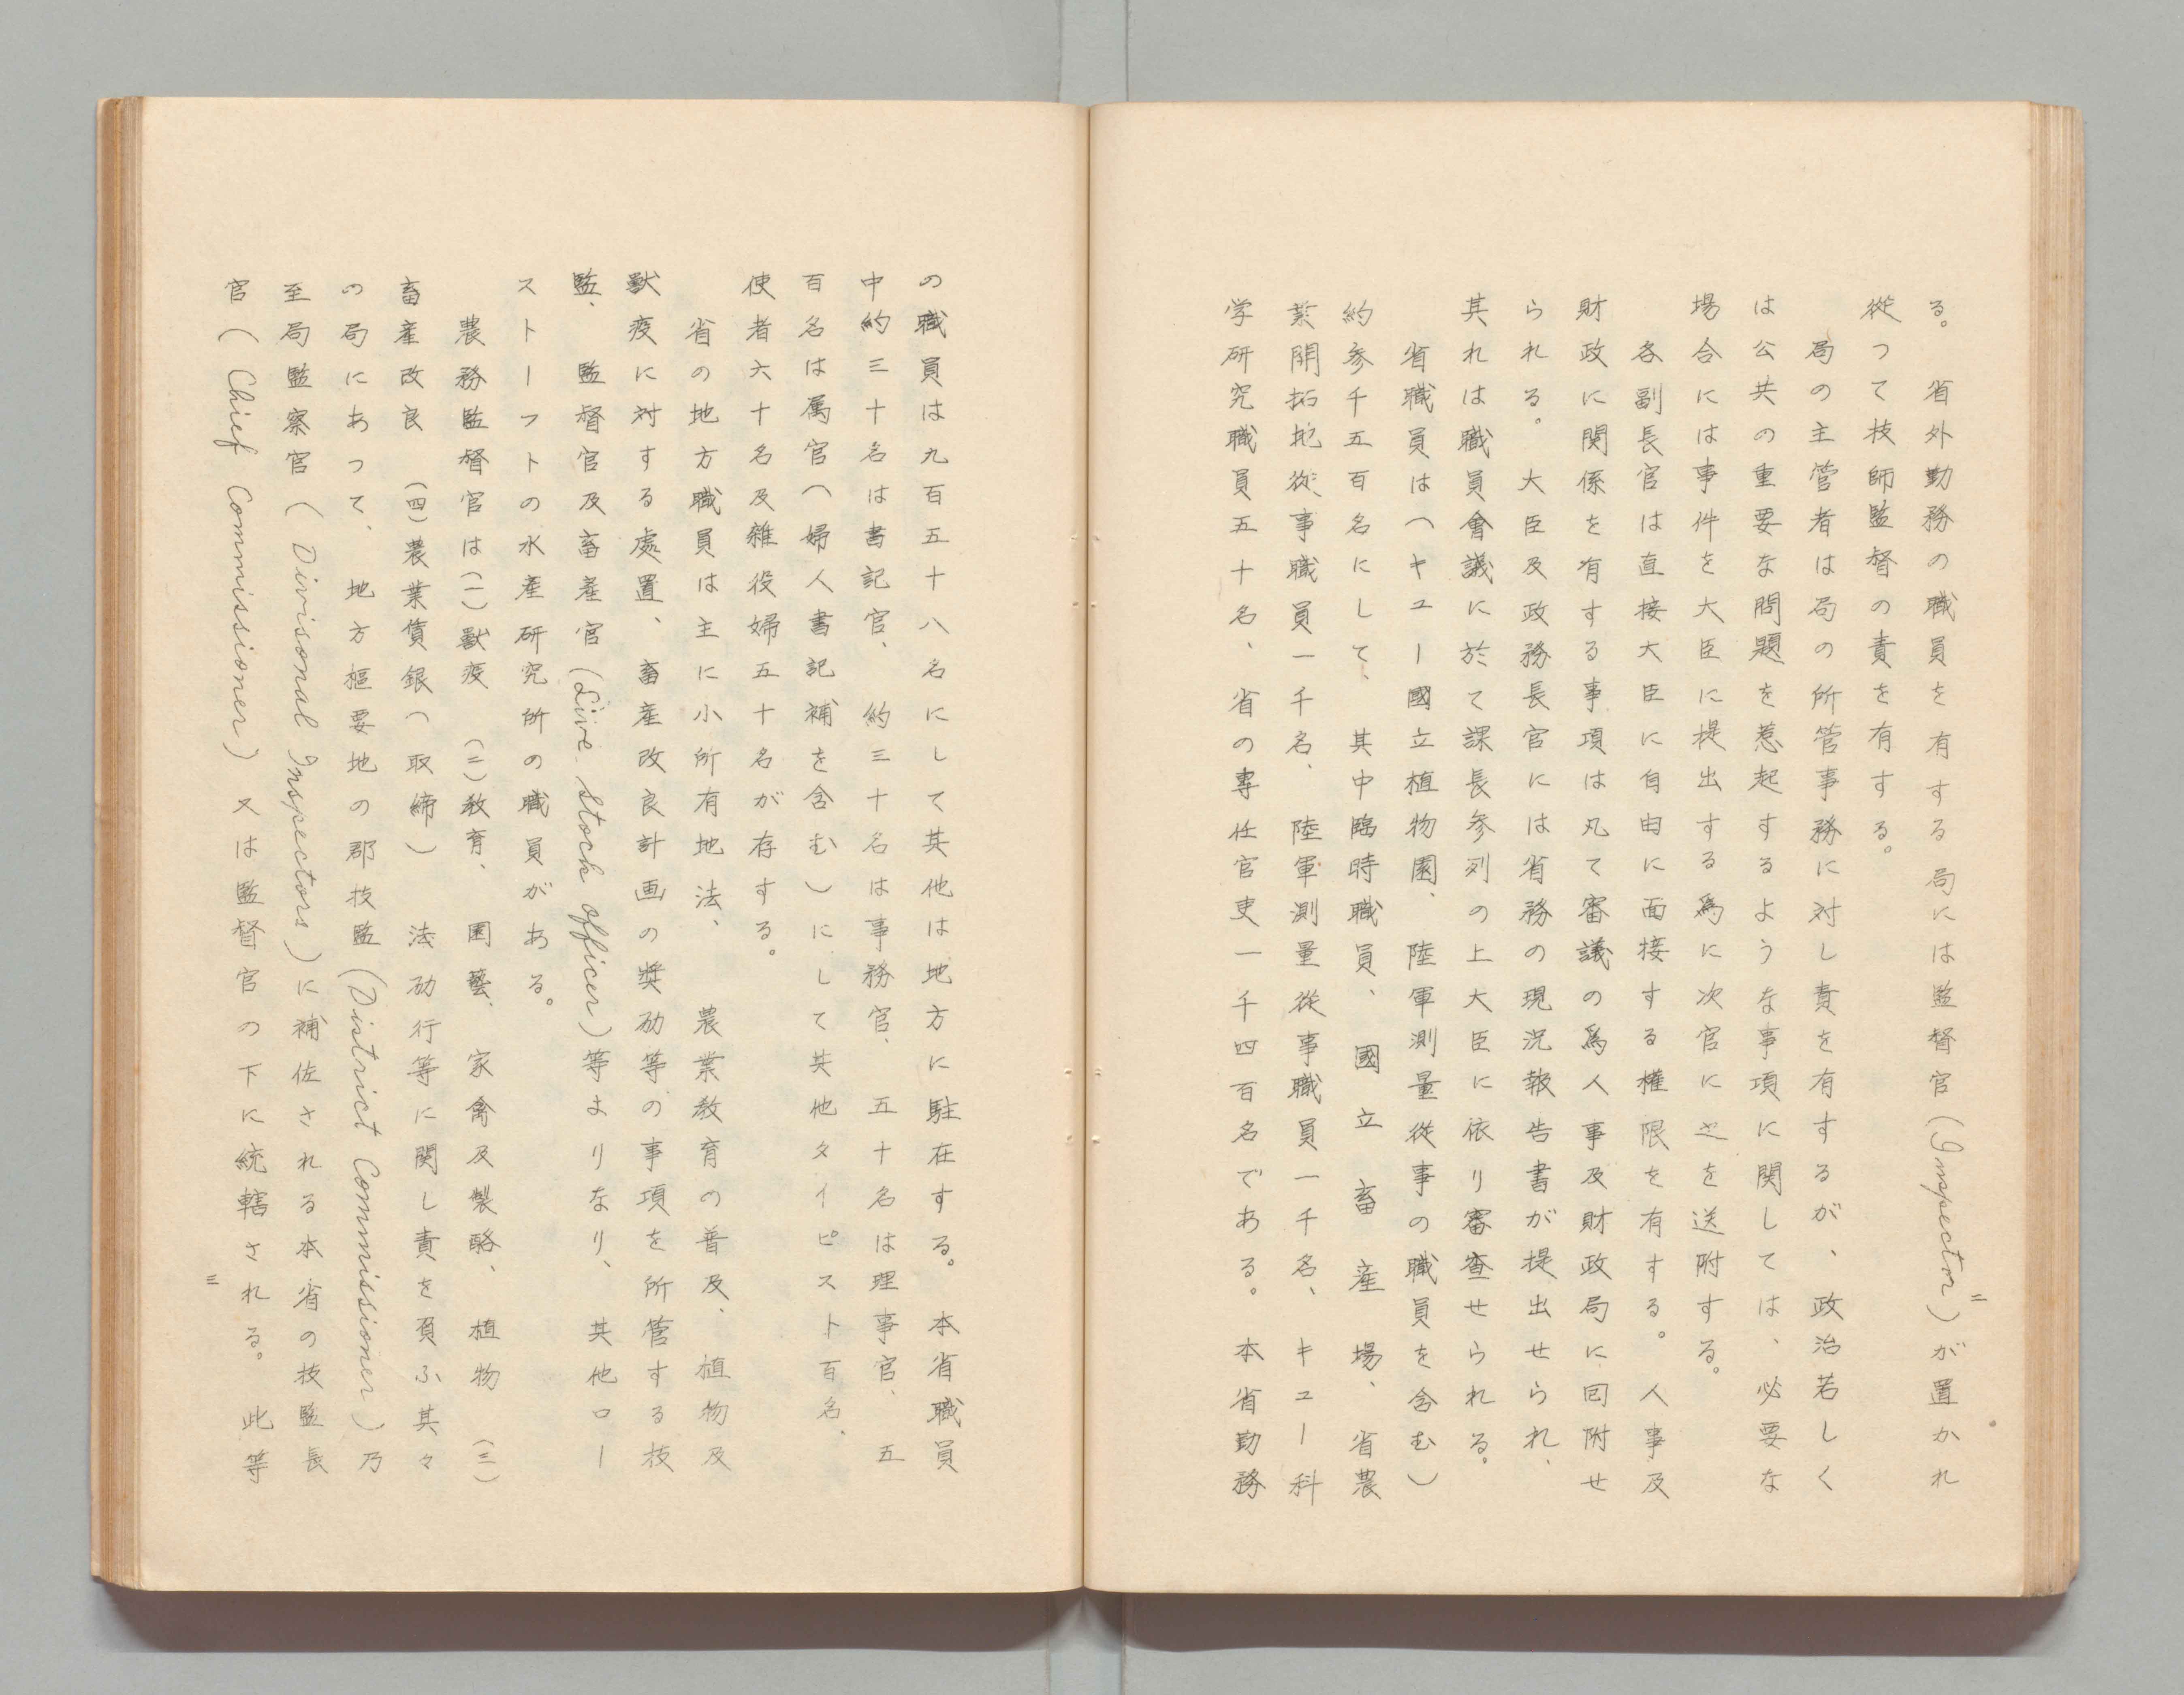 る。　省外勤務の職員を有する局には監督官(Inspector)が置かれ
従つて技師監督の責を有する。
局の主管者は局の所管事務に対し責を有するが、政治若しく
は公共の重要な問題を惹起するような事項に関しては、必要な
場合には事件を大臣に提出する爲に次官に之を送附する。
各副長官は直接大臣に自由に面接する権限を有する。人事及
財政に関係を有する事項は凡て審議の爲人事及財政局に回附せ
られる。大臣及政務長官には省務の現況報告書が提出せられ、
其れは職員會議に於て課長参列の上大臣に依り審査せられる。
省職員は(キユー國立植物園、陸軍測量従事の職員を含む)
約参千五百名にして、其中臨時職員、國立畜産場、省農
業開拓地從事職員一千名、陸軍測量從事職員一千名、キユー科
学研究職員五十名、省の専任官吏一千四百名である。本省勤務
二
の職員は九百五十八名にして其他は地方に駐在する。本省職員
中約三十名は書記官、約三十名は事務官、五十名は理事官、五
百名は属官(婦人書記補を含む)にして其他タイピスト百名、
使者六十名及雜役婦五十名が存する。
省の地方職員は主に小所有地法、農業教育の普及、植物及
獸疫に対する處置、畜産改良計画の奬励等の事項を所管する技
監、監督官及畜産官(Live stock officer)等よりなり、其他ロー
ストーフトの水産研究所の職員がある。
農務監督官は(一)獸疫　(二)教育、園藝、家禽及製酪、植物　(三)
畜産改良　(四)農業賃銀(取締)　法励行等に関し責を負ふ其々
の局にあつて、地方樞要地の郡技監(District Commissioner)乃
至局監察官(Divisonal Inspectors)に補佐される本省の技監長
官(Chief Commissioner)又は監督官の下に統轄される。此等
三